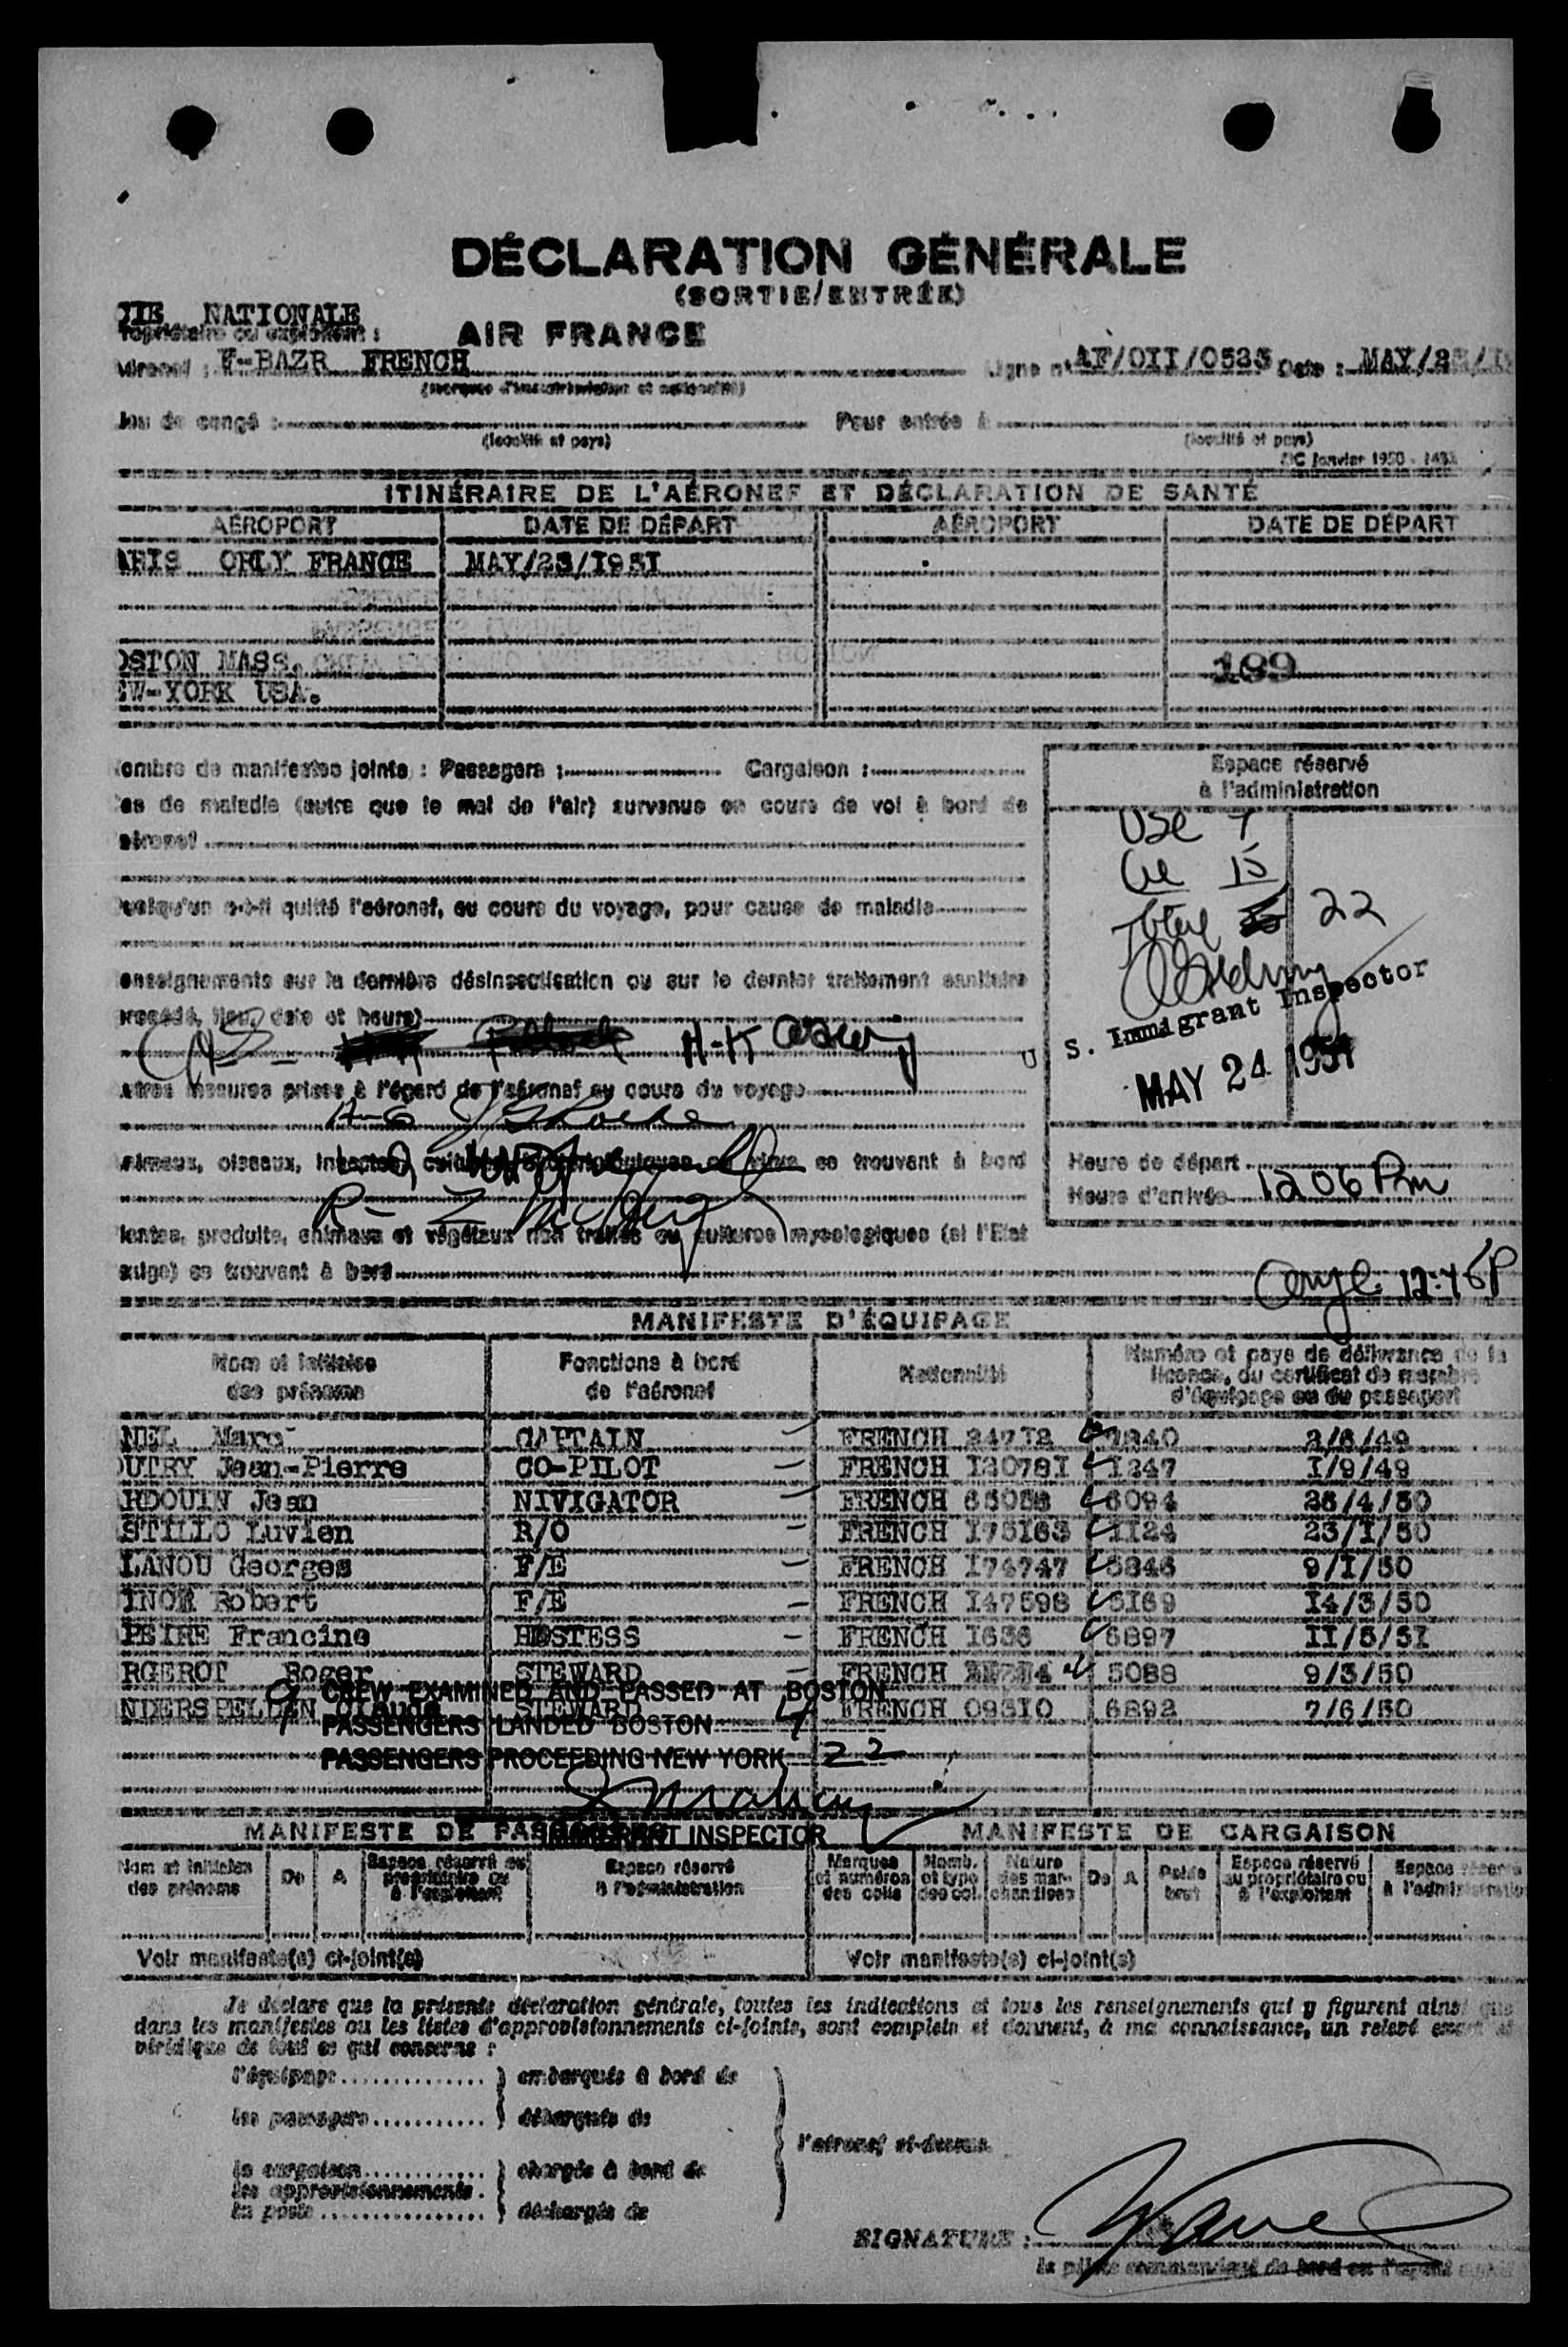 DÉCLARATION GÉNÉRALE
(SORTIE/ENTRÉE)
NATIONALE
AIR FRANCE
F-BAZR FRENCH
Ligne n° AF/OII/0535 Date : MAY/
(marques d'immatriculation et nationalité)
de congé : Pour entrée à
(localité et pays) (localité et pays)
Janvier 1950
ITINÉRAIRE DE L'AÉRONEF ET DÉCLARATION DE SANTÉ
AÉROPORT DATE DE DÉPART AÉROPORT DATE DE DÉPART
ARIS ORLY FRANCE MAY/23/I95I
OSTON MASS. 189
EW-YORK USA.
ombre de manifestes joints : Passagers : Cargaison :
Espace réservé
à l'administration
as de maladie (autre que le mal de l'air) survenus en cours de vol à bord de
aéronef
USC 7
15
Total 22
uelqu'un a-t-il quitté l'aéronef, au cours du voyage, pour cause de maladie
enseignements sur la dernière désinsectisation ou sur le dernier traitement sanitaire
procédé, lieu, date et heure)
U S. Immigrant Inspector
MAY 24 1951
utres mesures prises à l'égard de l'aéronef au cours du voyage
nimaux, oiseaux, insectes, cultures bactériologiques ou virus se trouvant à bord
Heure de départ
Heure d'arrivée 1206 Pm
lantes, produits, animaux et végétaux non traités ou cultures mycologiques (si l'Etat
exige) se trouvant à bord
MANIFESTE D'ÉQUIPAGE
Nom et initiales des prénoms Fonctions à bord de l'aéronef Nationalité Numéro et pays de délivrance de la licence, du certificat de membre d'équipage ou du passeport
NEL Marc CAPTAIN FRENCH 2/6/49
OUTRY Jean-Pierre CO-PILOT FRENCH I2078I I247 I/9/49
RDOUIN Jean NIVIGATOR FRENCH 6094 26/4/50
STILLO Luvien R/O FRENCH I75I63 II24 23/I/50
LANOU Georges F/E FRENCH I74747 5846 9/I/50
Robert F/E FRENCH I47598 5I69 I4/3/50
PEIRE Francine HOSTESS FRENCH I636 6897 II/5/5I
RGEROT Roger STEWARD FRENCH 5088 9/3/50
9 CREW EXAMINED AND PASSED AT BOSTON
NDERSPELLEN STEWARD FRENCH 09310 6892 7/6/50
PASSENGERS LANDED BOSTON 4
PASSENGERS PROCEEDING NEW YORK 22
IMMIGRANT INSPECTOR
MANIFESTE DE PASSAGERS MANIFESTE DE CARGAISON
Nom et initiales des prénoms De A Espace réservé au propriétaire ou à l'exploitant Espace réservé à l'administration Marques et numéros des colis Nomb. et type des col. Nature des marchandises De A Poids brut Espace réservé au propriétaire ou à l'exploitant Espace réservé à l'administration
Voir manifeste(s) ci-joint(s) Voir manifeste(s) ci-joint(s)
Je déclare que la présente déclaration générale, toutes les indications et tous les renseignements qui y figurent ainsi que
dans les manifestes ou les listes d'approvisionnements ci-joints, sont complets et donnent, à ma connaissance, un relevé exact et
véridique de tout ce qui concerne :
l'équipage embarqués à bord de
les passagers débarqués de
l'aéronef ci-dessus.
la cargaison chargés à bord de
les approvisionnements
la poste déchargés de
SIGNATURE :
le pilote commandant de bord ou l'agent